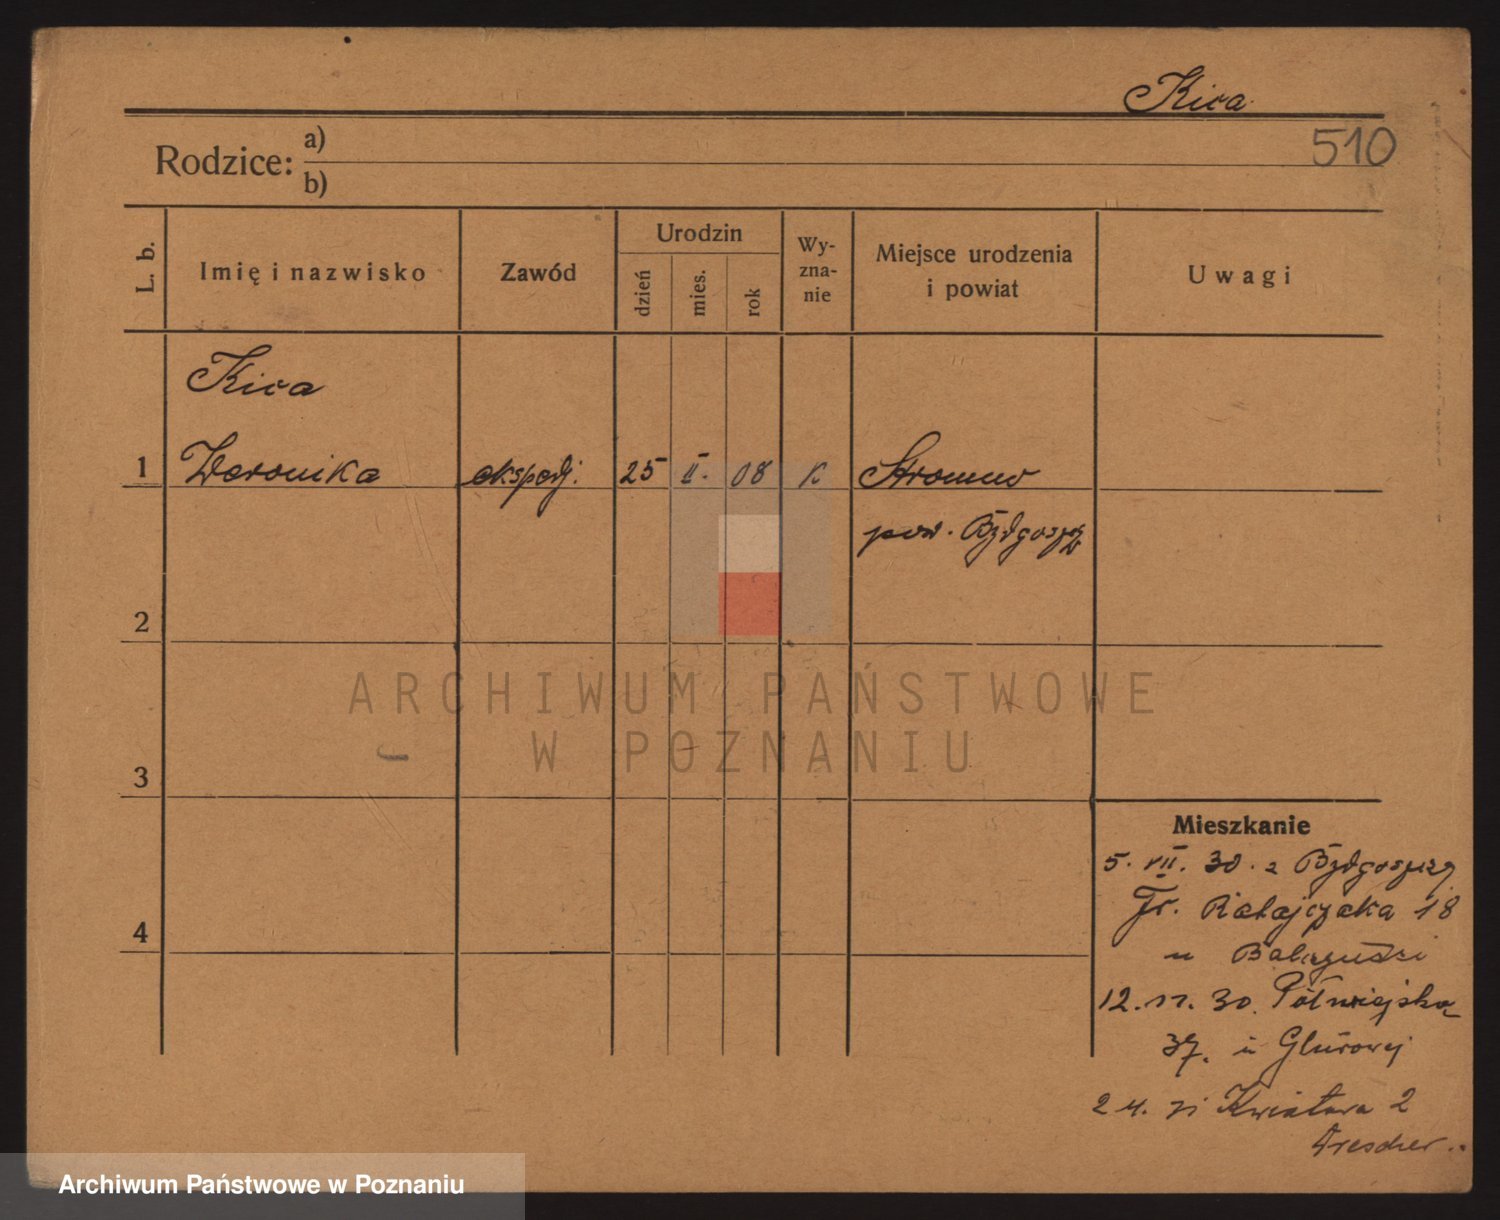 Kica
510
Rodzice: a)
b)
L. b.
Imię i nazwisko
Zawód
Urodzin
dzień
mies.
rok
Wy-
zna-
nie
Miejsce urodzenia
i powiat
Uwagi
Kica
1 Weronika ekspedj. 25 II. 08 K Stromno
pow. Bydgoszcz
2
3
4
ARCHIWUM PAŃSTWOWE
W POZNANIU
Mieszkanie
5. VII. 30. z Bydgoszczy
Fr. Ratajczaka 18
u
12. 30. Półwiejska
37. u
24. Kwiatowa 2
Drescher
Archiwum Państwowe w Poznaniu